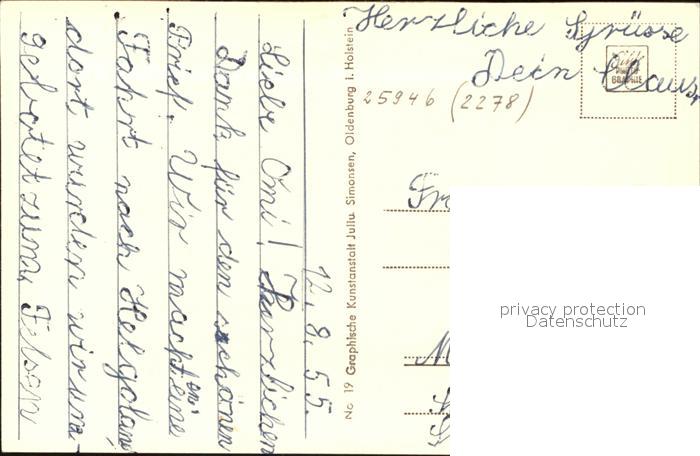 12. 8. 55.
Liebe Omi! Herzlichen
Dank für den schönen
Brief. Wir machten eine
Fahrt nach Helgoland
dort wurden wir um-
gebotet zum Felsen
Herzliche Grüsse
Dein Claus
25946 (2278)
No 19 Graphische Kunstanstalt Julius Simonsen, Oldenburg i. Holstein
Fr
M
privacy protection
Datenschutz